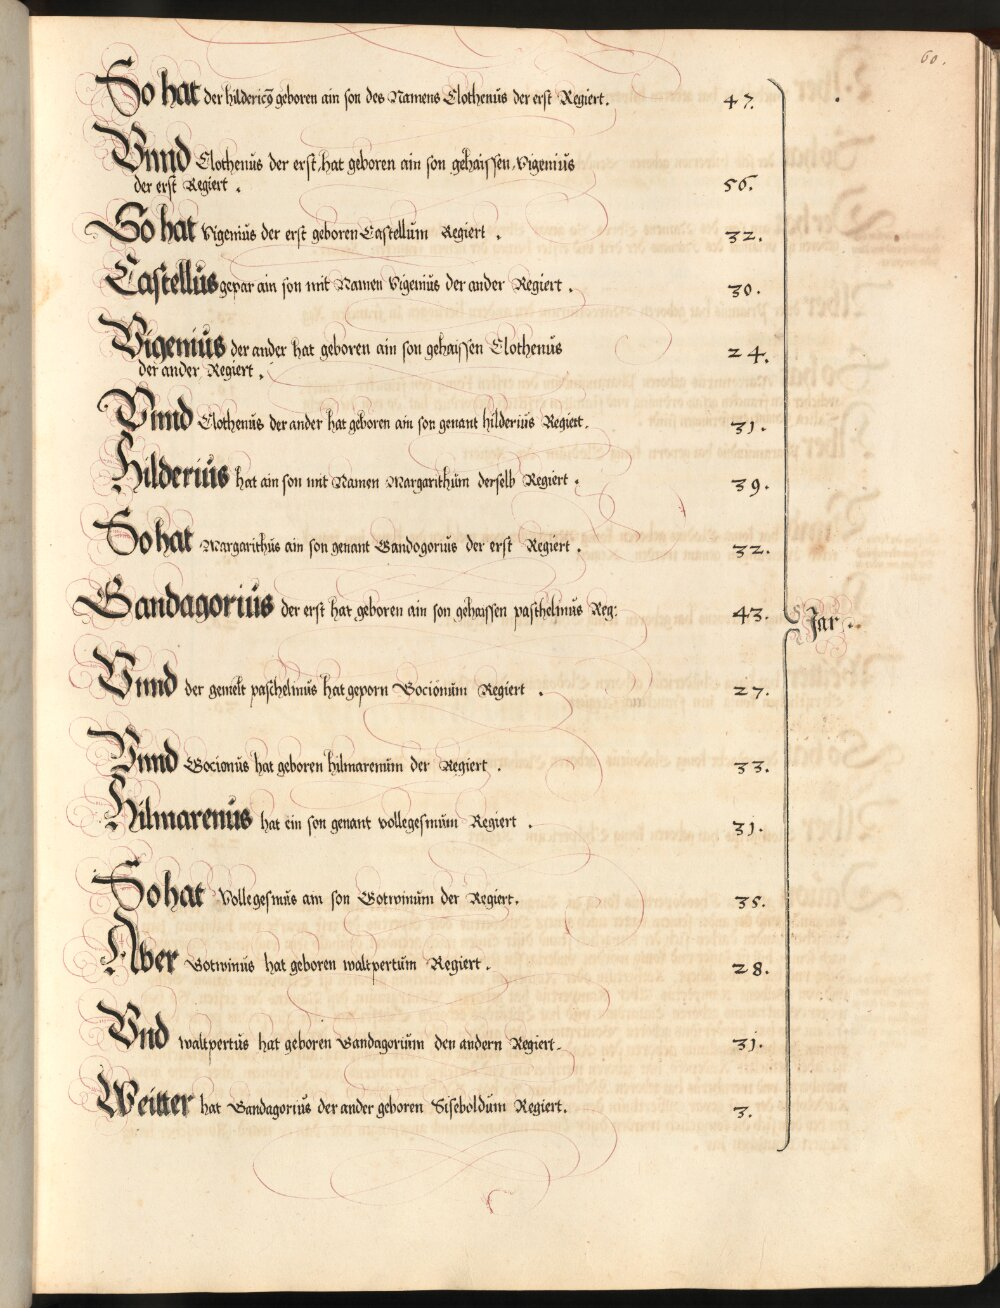 60.
So hat der hildericq geboren ain son des Namens Clothenus der erst Regiert. 47.
Vnnd Clothenus der erst, hat geboren ain son gehaissen, Vigenius
der erst Regiert. 56.
So hat Vigenius der erst geboren Castellum Regiert. 32.
Castellus gepar ain son mit Namen Vigenius der ander Regiert. 30.
Vigenius der ander hat geboren ain son gehaissen Clothenus
der ander Regiert. 24.
Vnnd Clothenus der ander hat geboren ain son genant hilderius Regiert. 31.
Hilderius hat ain son mit Namen Margarithum derselb Regiert. 39.
So hat Margarithus ain son genant Gandogorius der erst Regiert. 32.
Gandagorius der erst hat geboren ain son gehaissen paschelmus Reg: 43. Jar.
Vnnd der gemelt paschelmus hat geporn Gocionum Regiert. 27.
Vnnd Gocionus hat geboren hilmarenum der Regiert. 33.
Hilmarenus hat ein son genant vollegesmum Regiert. 31.
So hat Vollegesmus ain son Gotwinum der Regiert. 35.
Aber Gotwinus hat geboren waltpertum Regiert. 28.
Vnd waltpertus hat geboren Gandagorium den andern Regiert. 31.
Weitter hat Gandagorius der ander geboren Siseboldum Regiert. 3.